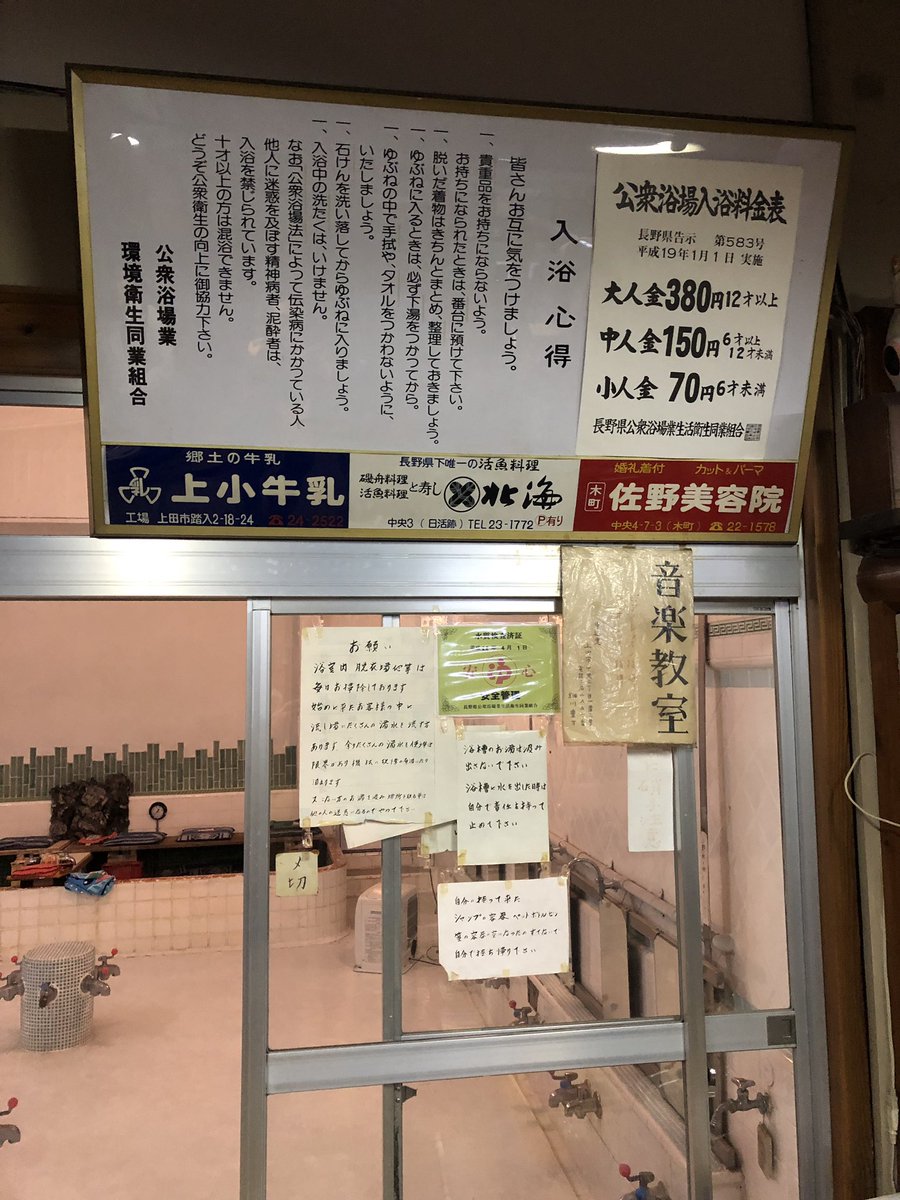 公衆浴場入浴料金表
長野県告示 第583号
平成19年1月1日 実施
大人金380円12才以上
中人金150円6才以上12才未満
小人金 70円6才未満
長野県公衆浴場業生活衛生同業組合
入浴心得
皆さんお互に気をつけましょう。
一、貴重品をお持ちにならないよう。
お持ちになられたときは、番台に預けて下さい。
一、脱いだ着物はきちんとまとめ、整理しておきましょう。
一、ゆぶねに入るときは、必ず下湯をつかってから。
一、ゆぶねの中で手拭や、タオルをつかわないように、
いたしましょう。
一、石けんを洗い落してからゆぶねに入りましょう。
一、入浴中の洗たくは、いけません。
なお「公衆浴場法」によって伝染病にかかっている人
他人に迷惑を及ぼす精神病者、泥酔者は、
入浴を禁じられています。
十才以上の方は混浴できません。
どうぞ公衆衛生の向上に御協力下さい。
公衆浴場業
環境衛生同業組合
郷土の牛乳
乳
上小牛乳
工場 上田市踏入2-18-24 ☎24-2522
長野県下唯一の活魚料理
磯舟料理
活魚料理
と寿し
北海
中央3(日活跡) TEL23-1772 P有り
婚礼着付 カット&パーマ
木町
佐野美容院
中央4-7-3(木町) ☎22-1578
音楽教室
お願い
浴室内 脱衣場他等は
毎日お掃除しております
水質検査済証
4月1日
安心
安全管理
長野県公衆浴場業生活衛生同業組合
浴槽のお湯は汲み
出さないで下さい
浴槽に水を出した時は
自分で責任を持って
止めて下さい
〆切
自分で持って来た
自分で持ち帰り下さい